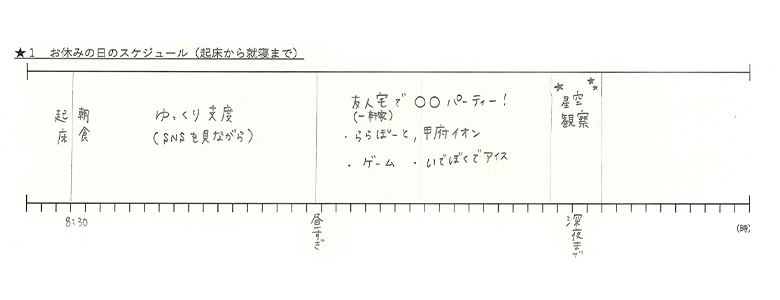 ★1 お休みの日のスケジュール（起床から就寝まで）
起床
朝食
ゆっくり支度
(SNSを見ながら)
友人宅で ○○パーティー！
(一軒家)
・ららぽーと，甲府イオン
・ゲーム ・いでぼくでアイス
星空
観察
8:30
昼すぎ
深夜まで
(時)